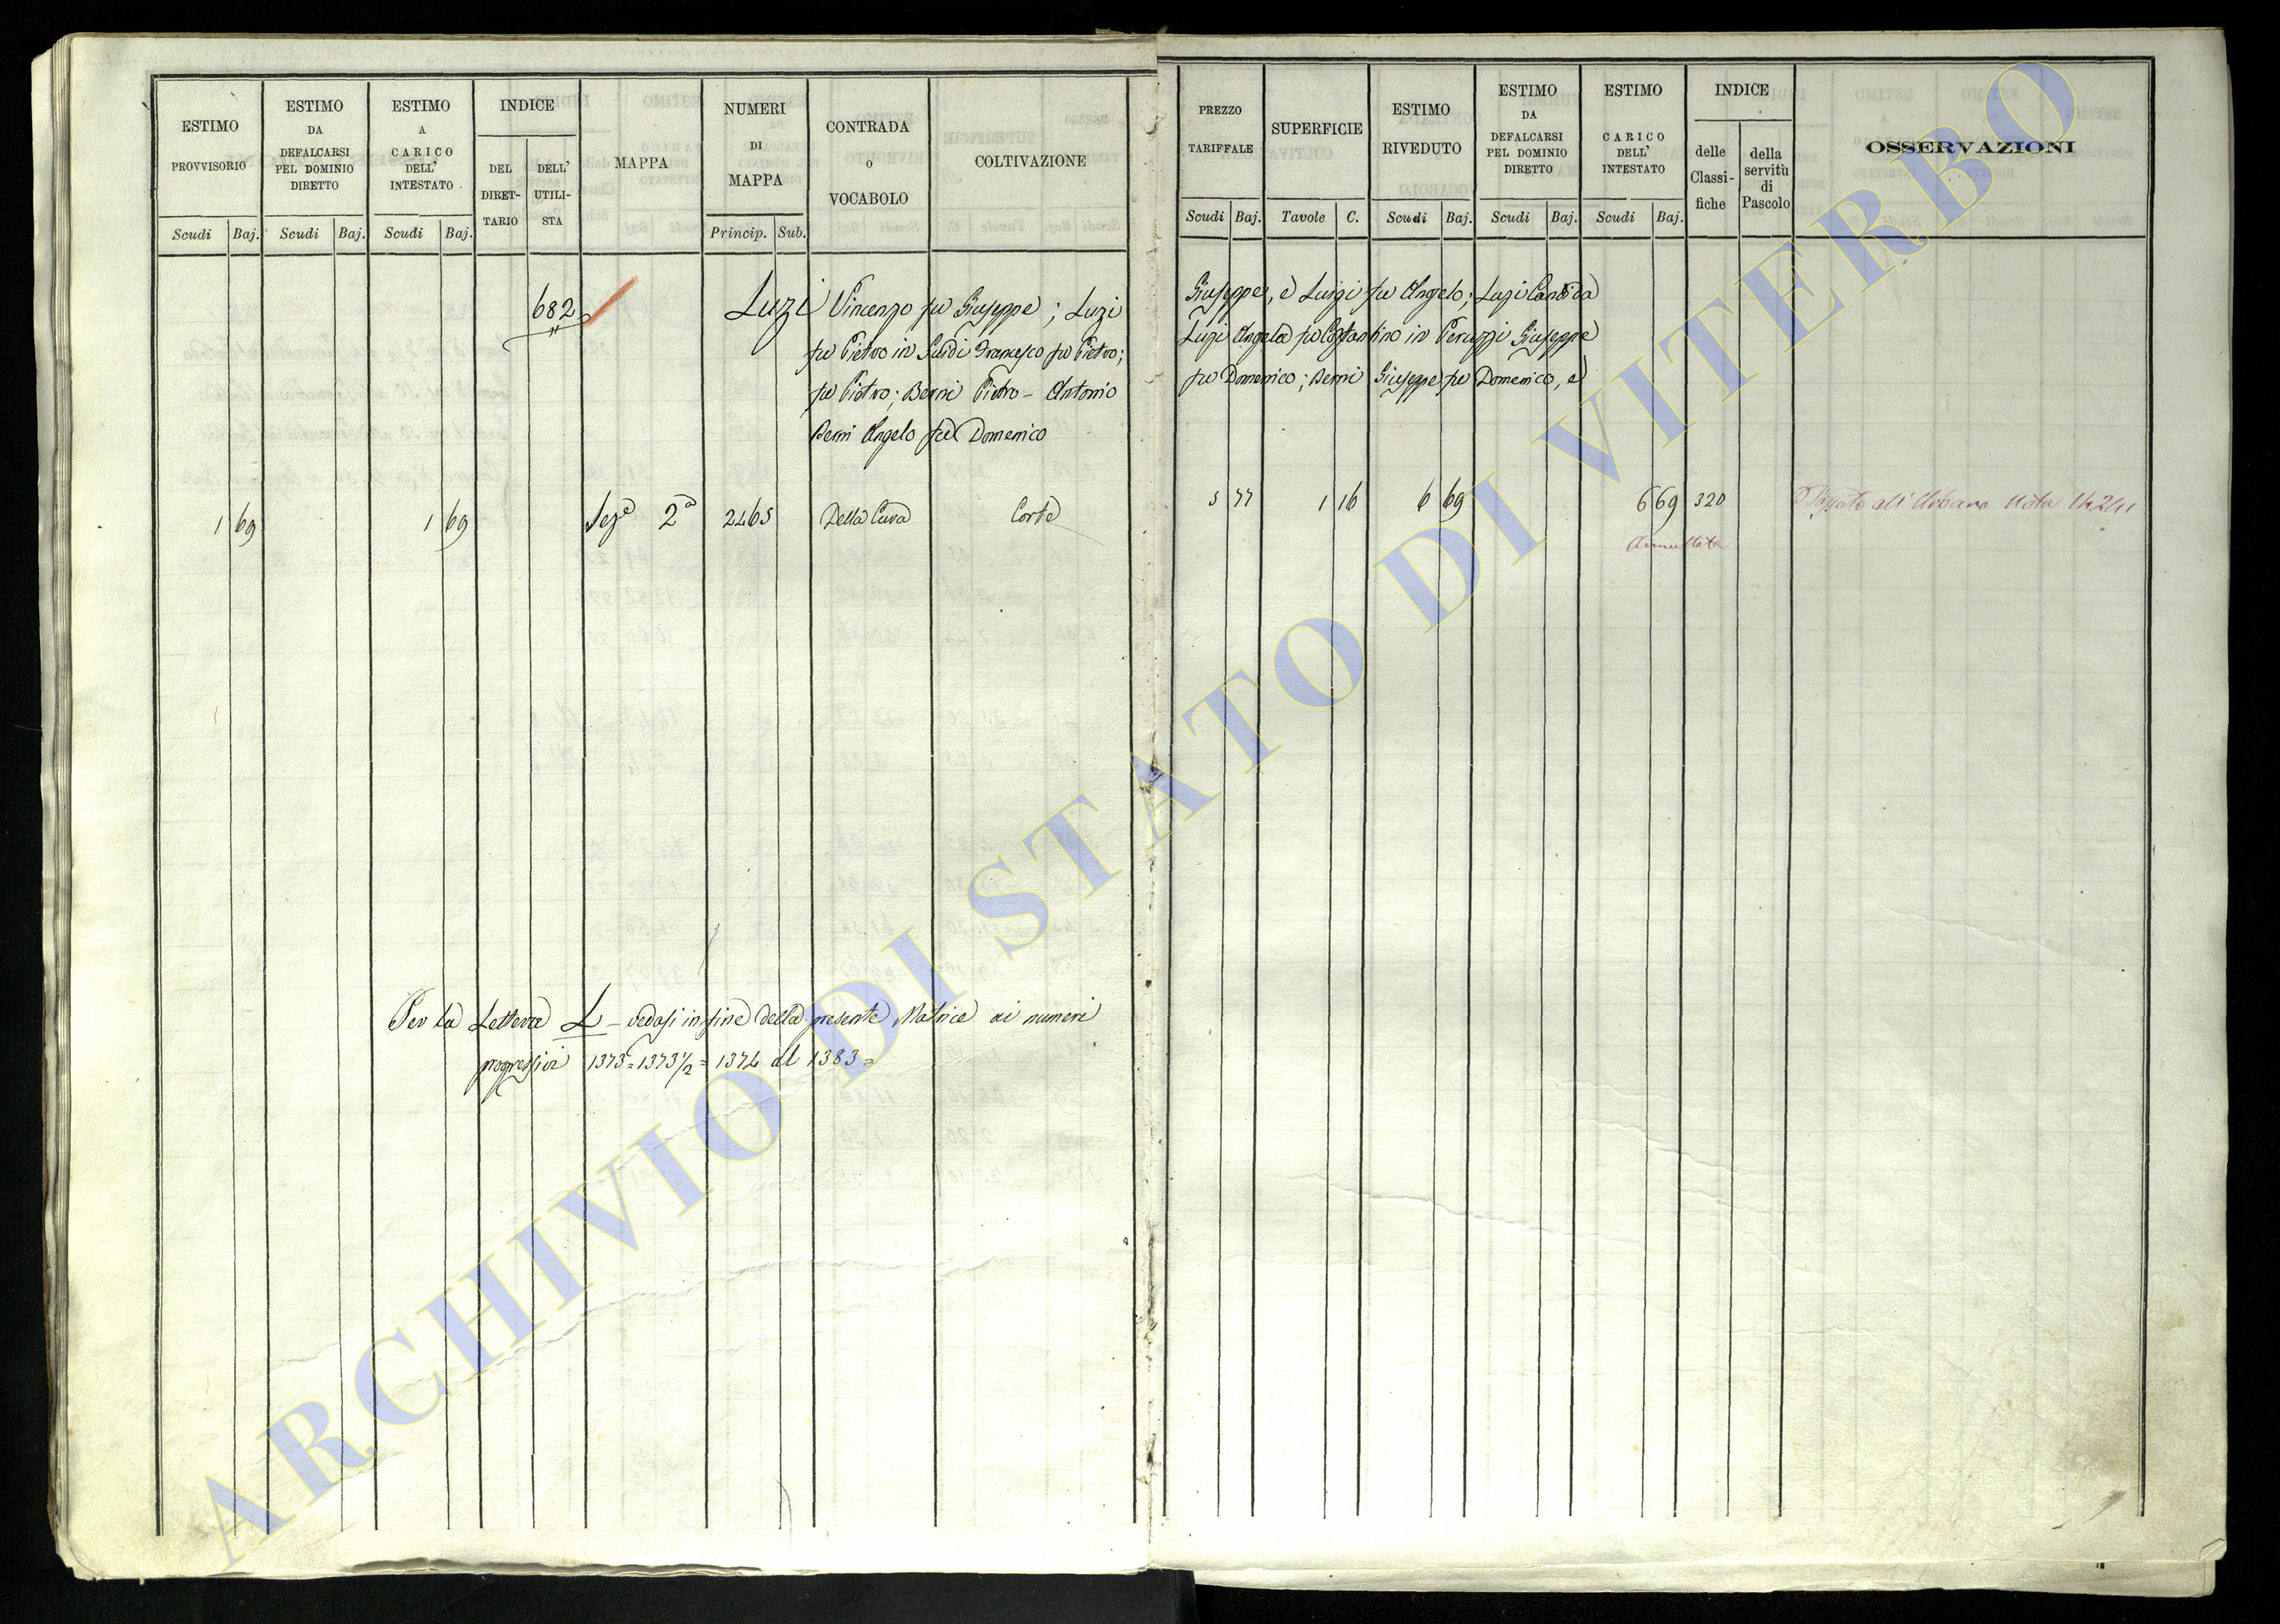 ESTIMO
PROVVISORIO
Scudi Baj.
ESTIMO
DA
DEFALCARSI
PEL DOMINIO
DIRETTO
Scudi Baj.
ESTIMO
A
CARICO
DELL'
INTESTATO
Scudi Baj.
INDICE
DEL
DIRET-
TARIO
DELL'
UTILI-
STA
MAPPA
NUMERI
DI
MAPPA
Princip. Sub.
CONTRADA
o
VOCABOLO
COLTIVAZIONE
PREZZO
TARIFFALE
Scudi Baj.
SUPERFICIE
Tavole C.
ESTIMO
RIVEDUTO
Scudi Baj.
ESTIMO
DA
DEFALCARSI
PEL DOMINIO
DIRETTO
Scudi Baj.
ESTIMO
CARICO
DELL'
INTESTATO
Scudi Baj.
INDICE
delle
Classi-
fiche
della
servitù
di
Pascolo
OSSERVAZIONI
682 Luzi Vincenzo fu Giuseppe; Luzi Giuseppe, e Luigi fu Angelo; Luzi Candida
fu Pietro in Guidi Francesco fu Pietro; Luzi Angela fu Costantino in Peruzzi Giuseppe
fu Pietro; Berni Pietro - Antonio fu Domenico; Berni Giuseppe fu Domenico, e
Berni Angelo fu Domenico
1 69 1 69 Sez.e 2a 2465 Della Cava Corte 5 77 1 16 6 69 6 69 320 all'Urbano Nota
Annullata
Per la Lettera L - vedasi in fine della presente Matrice ai numeri
progressivi 1373 = 1373 1/2 = 1374 al 1383 =
ARCHIVIO DI STATO DI VITERBO